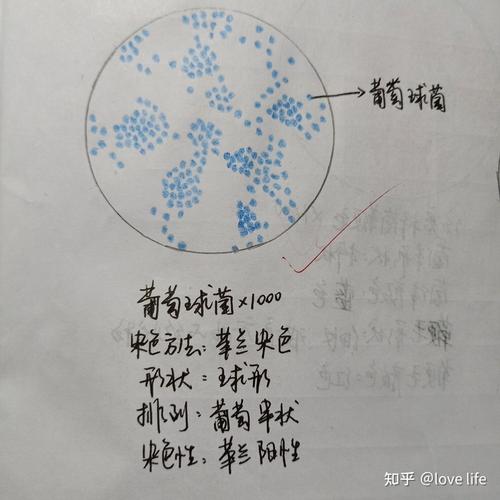 葡萄球菌
葡萄球菌×1000
染色方法：革兰染色
形状：球形
排列：葡萄串状
染色性：革兰阳性
知乎 @love life